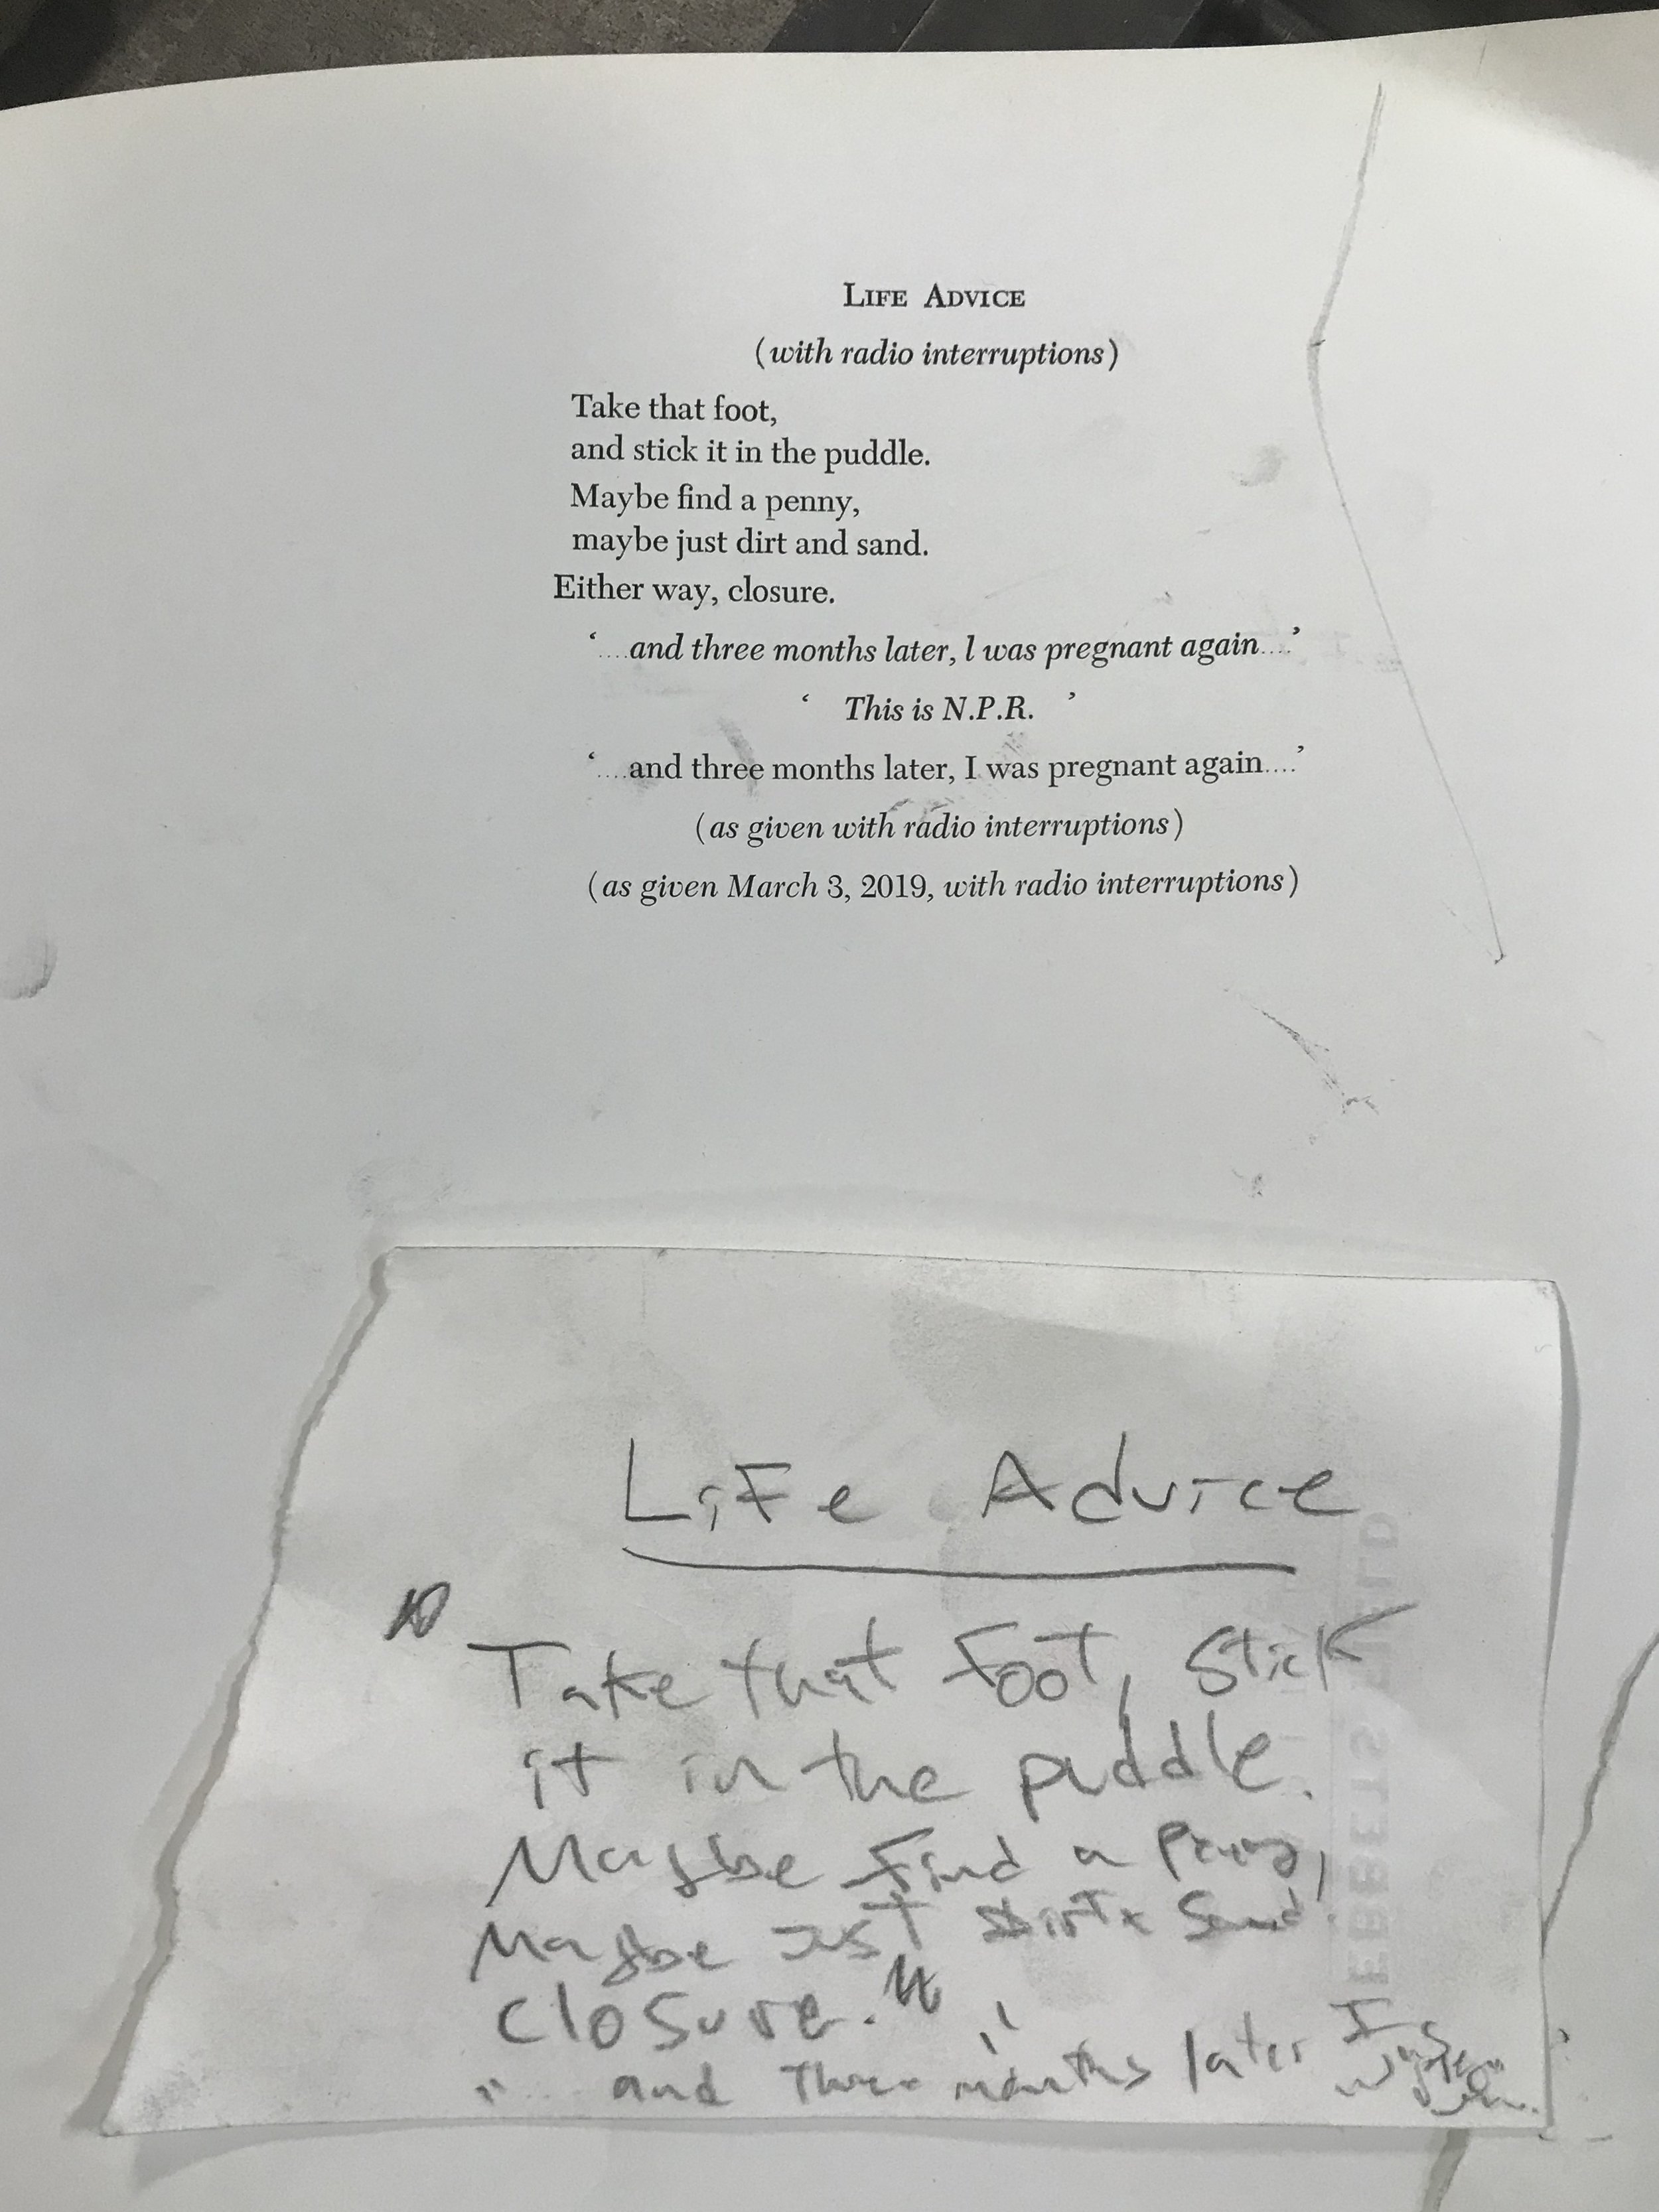 LIFE ADVICE
(with radio interruptions)
Take that foot,
and stick it in the puddle.
Maybe find a penny,
maybe just dirt and sand.
Either way, closure.
‘....and three months later, l was pregnant again....’
‘ This is N.P.R. ’
‘....and three months later, I was pregnant again....’
(as given with radio interruptions)
(as given March 3, 2019, with radio interruptions)
Life Advice
"Take that foot, stick
it in the puddle.
Maybe find a penny,
Maybe just dirt + sand.
closure."
"... and three months later I was